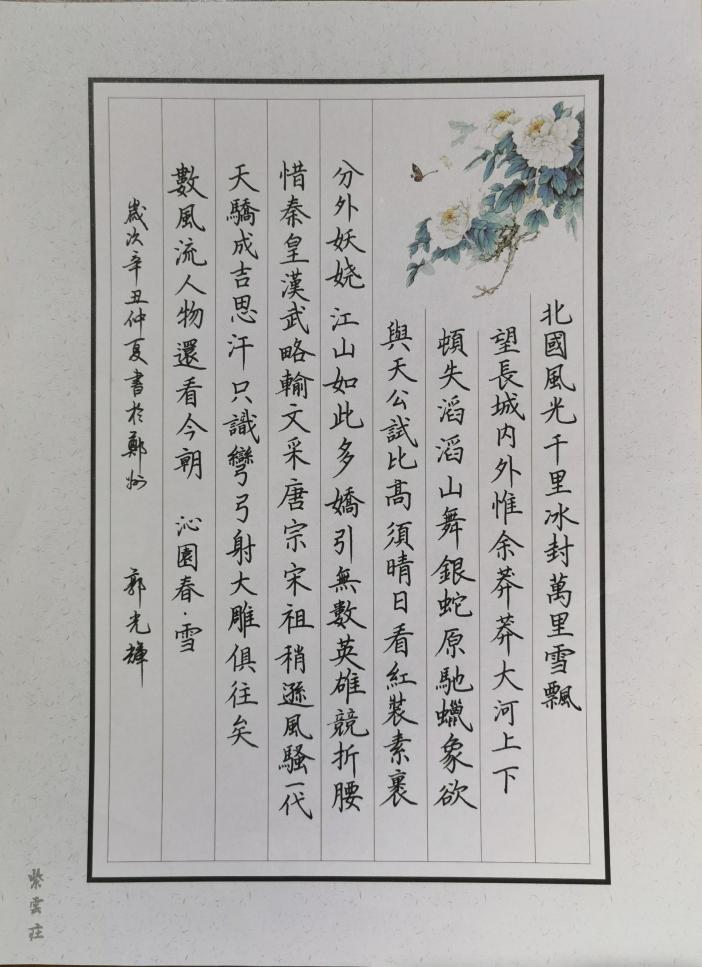 北國風光千里冰封萬里雪飄
望長城内外惟余莽莽大河上下
頓失滔滔山舞銀蛇原馳蠟象欲
與天公試比高須晴日看紅裝素裹
分外妖娆江山如此多嬌引無數英雄競折腰
惜秦皇漢武略輸文采唐宗宋祖稍遜風騷一代
天驕成吉思汗只識彎弓射大雕俱往矣
數風流人物還看今朝 沁園春·雪
歲次辛丑仲夏書於鄭州 郭光輝
紫雲莊